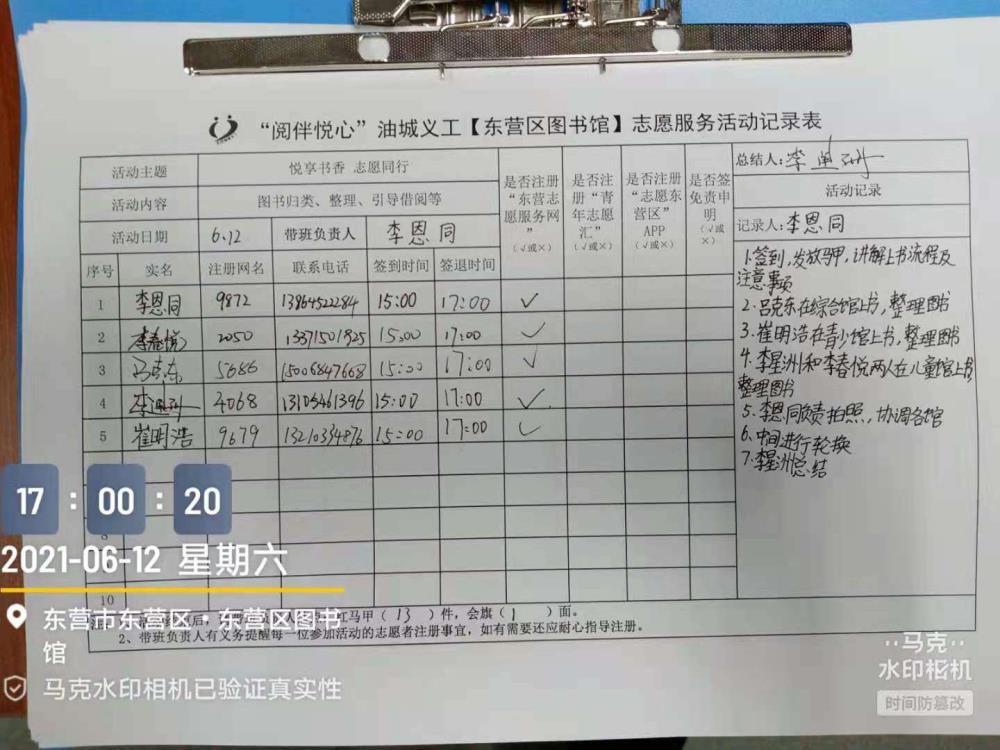 “阅伴悦心”油城义工【东营区图书馆】志愿服务活动记录表
活动主题 悦享书香 志愿同行
活动内容 图书归类、整理、引导借阅等
活动日期 6.12 带班负责人 李恩同
是否注册“东营志愿服务网”（√或×）
是否注册“青年志愿汇”（√或×）
是否注册“志愿东营区”APP（√或×）
是否签免责申明（√或×）
序号 实名 注册网名 联系电话 签到时间 签退时间
1 李恩同 9872 13864522284 15:00 17:00 √
2 李春悦 2050 13371501925 15:00 17:00 √
3 5686 15006847668 15:00 17:00 √
4 4068 13105461396 15:00 17:00 √
5 崔明浩 9679 13210334876 15:00 17:00 √
10
总结人:
活动记录
记录人:李恩同
1.签到,发放马甲,讲解上书流程及
注意事项
2.吕克东在综合馆上书,整理图书
3.崔明浩在青少馆上书,整理图书
4.李星洲和李春悦两人在儿童馆上书
整理图书
5.李恩同负责拍照,协调各馆
6.中间进行轮换
7.李星洲总结
红马甲（13）件，会旗（1）面。
2、带班负责人有义务提醒每一位参加活动的志愿者注册事宜，如有需要还应耐心指导注册。
17:00:20
2021-06-12 星期六
东营市东营区·东营区图书
馆
马克水印相机已验证真实性
马克
水印相机
时间防篡改